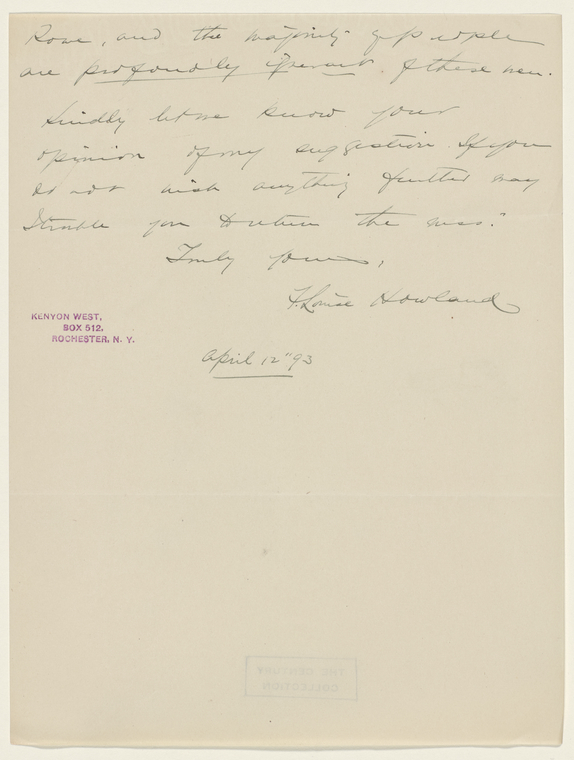 Rowe, and the majority of people
are profoundly ignorant of these men.
Kindly let me know your
opinion of my suggestion. If you
do not wish anything further may
I trouble you to return the mss.?
Truly yours,
F. Louise Howland
KENYON WEST,
BOX 512.
ROCHESTER, N. Y.
April 12" 93
THE CENTURY
COLLECTION